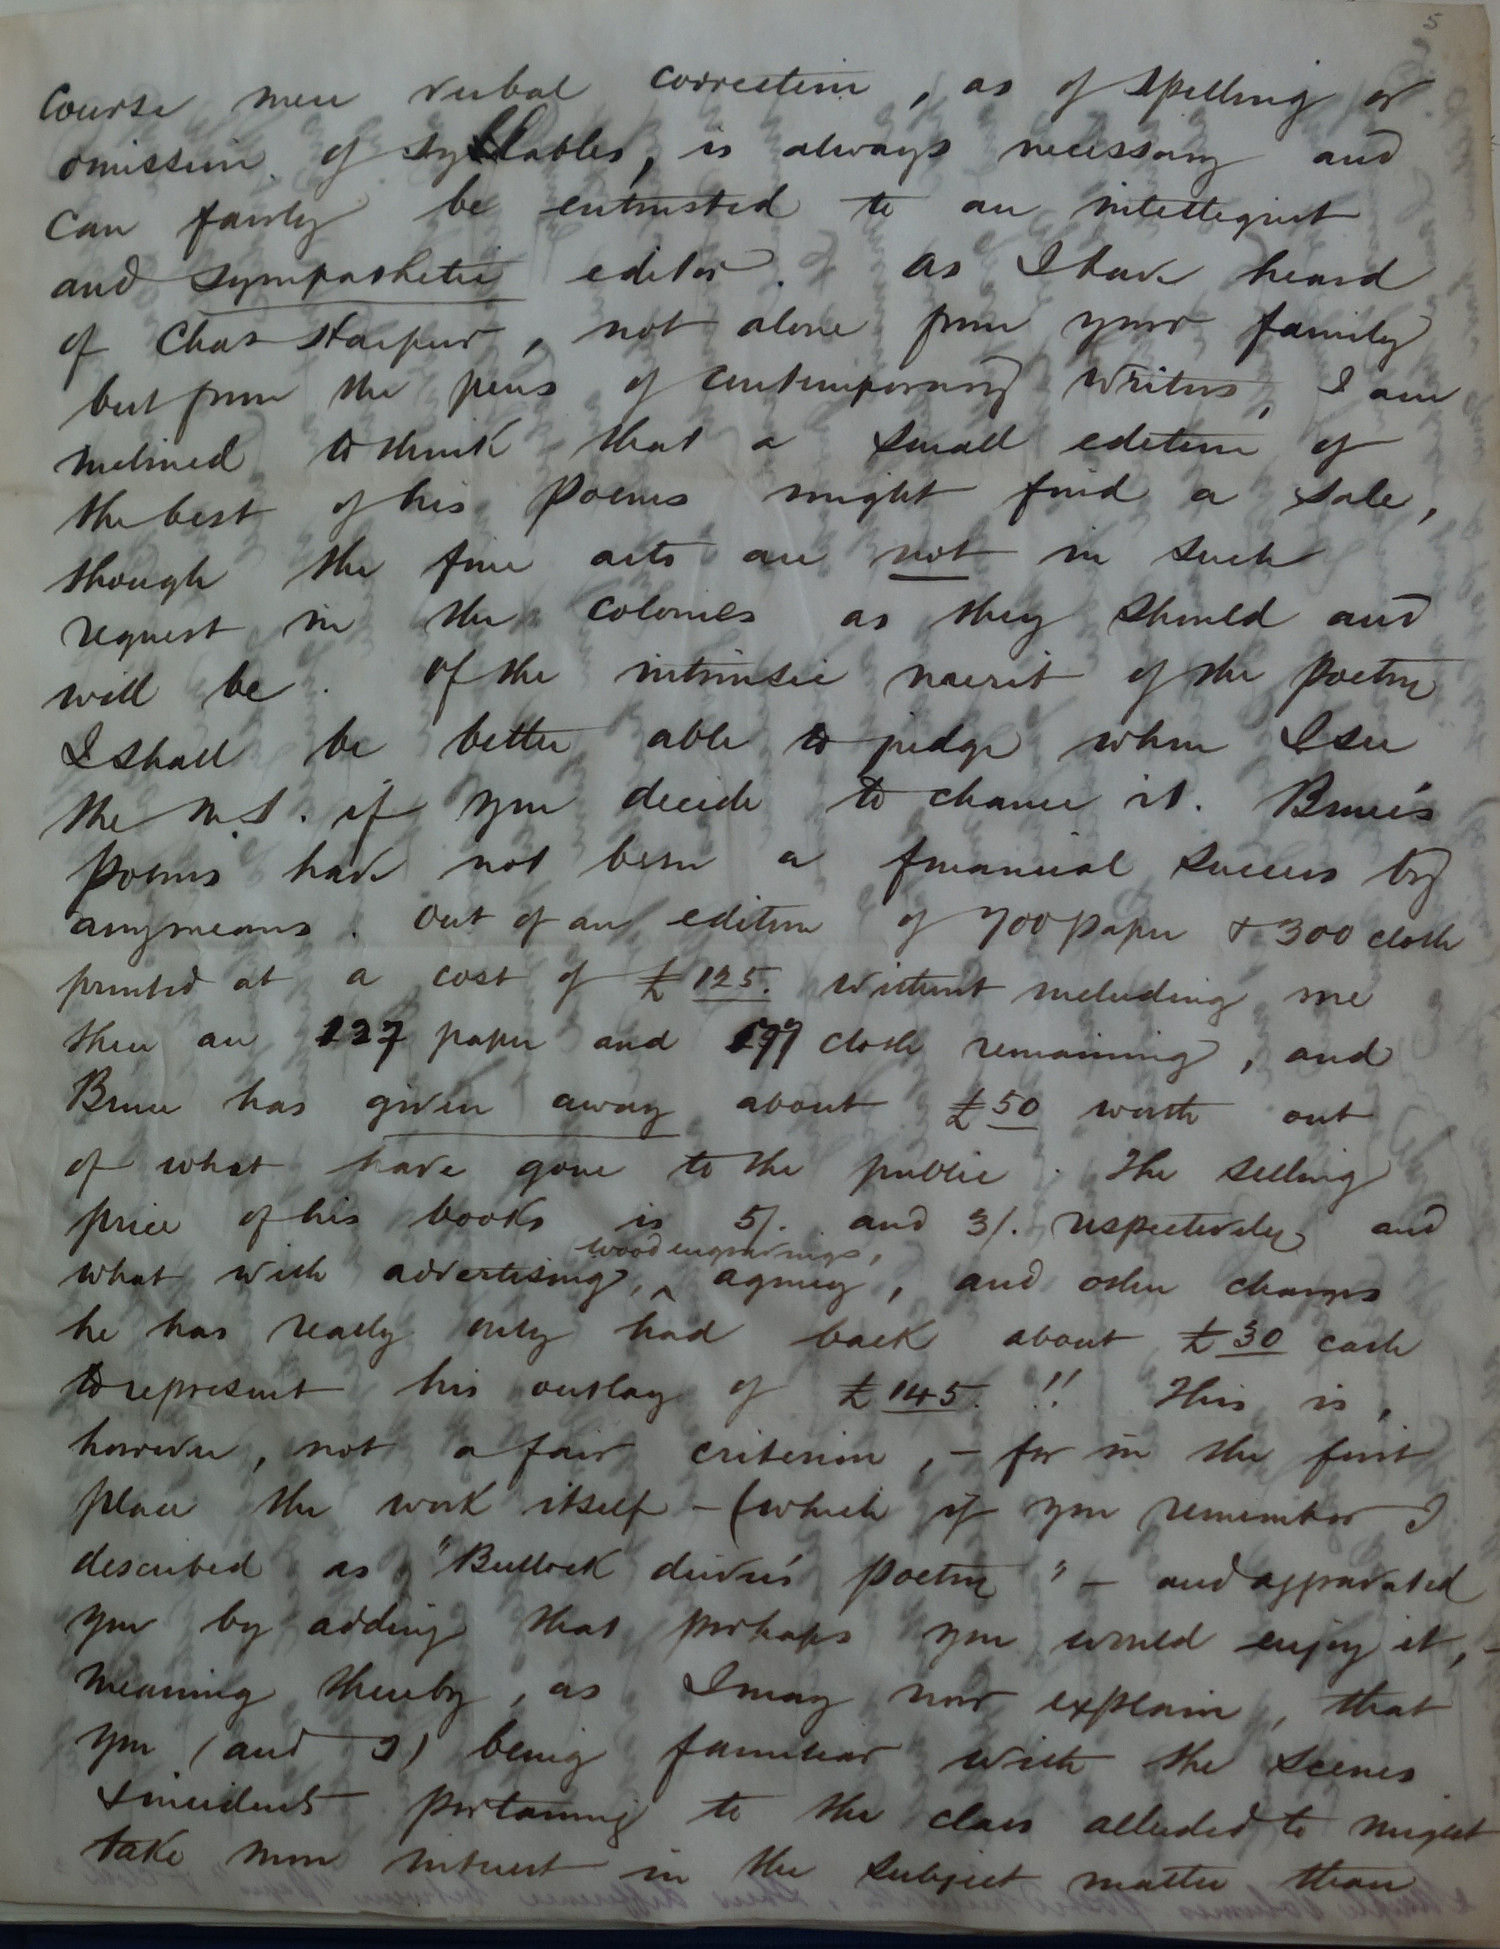 5
Course mere verbal correction, as of spelling or
omission of syllables, is always necessary and
can fairly be entrusted to an intelligent
and sympathetic editor. As I have heard
of Chas Harpur, not alone from your family
but from the pens of contemporary writers, I am
inclined to think that a small edition of
the best of his poems might find a sale,
though the fine arts are not in such
request in the colonies as they should and
will be. Of the intrinsic merit of the poetry
I shall be better able to judge when I see
the M.S. if you decide to chance it. Bruce's
poems have not been a financial success by
anymeans. Out of an edition of 700 paper & 300 cloth
printed at a cost of £125. without including me
there are 127 paper and cloth remaining, and
Bruce has given away about £50 worth out
of what have gone to the public. The selling
price of his books is 5/. and 3/. respectively and
what with advertising, wood engravings, agency, and other charges
he has really only had back about £30 cash
to represent his outlay of £145. !! This is,
however, not a fair criterion, – for in the first
place the work itself – (which if you remember I
described as "Bullock driver's poetry" – and aggravated
you by adding that perhaps you would enjoy it, –
meaning thereby, as I may now explain, that
you (and I) being familiar with the scenes
& incidents pertaining to the class alluded to might
take more interest in the subject matter than